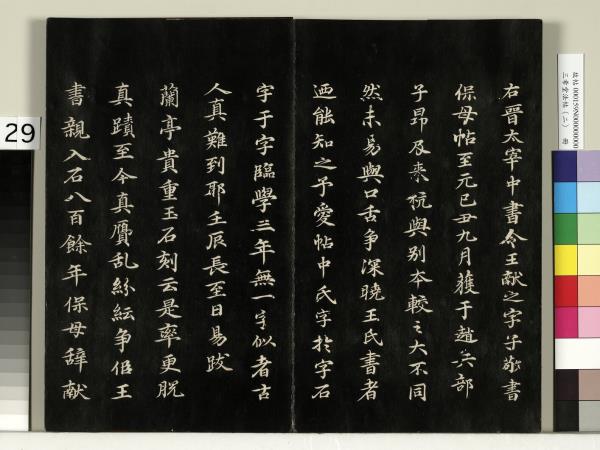 右晉太宰中書令王獻之字子敬書
保母帖至元己丑九月獲于趙兵部
子昂及来杭與別本較之大不同
然未易與口舌爭深曉王氏書者
迺能知之予愛帖中氏字於字石
字于字臨學三年無一字似者古
人真難到耶壬辰長至日易跋
蘭亭貴重玉石刻云是率更脫
真蹟至今真贋乱紛紜争佀王
書親入石八百餘年保母辞献
29
故帖 000159N000000000
三希堂法帖(二) 冊